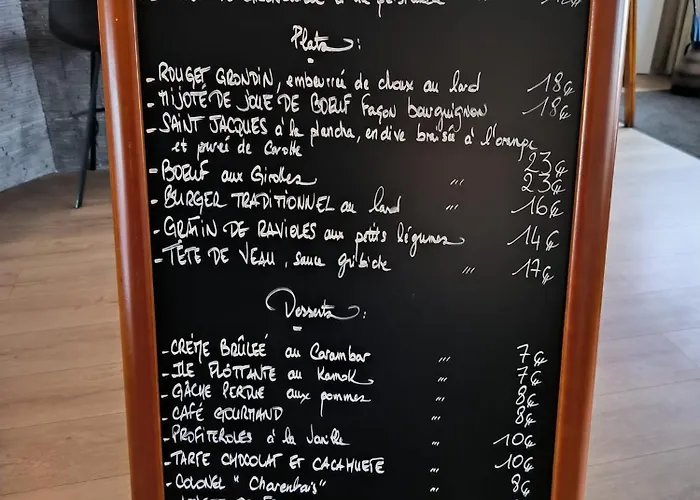 Plats :
- ROUGET GRONDIN, embeurrée de choux au lard 18€
- MIJOTÉ DE JOUE DE BOEUF façon bourguignon 18€
- SAINT JACQUES à la plancha, endive braisée à l'orange
et purée de Carotte 23€
- BOEUF aux Girolles " 23€
- BURGER TRADITIONNEL au lard " 16€
- GRATIN DE RAVIOLES aux petits légumes 14€
- TÊTE DE VEAU, sauce gribiche " 17€
Desserts :
- CRÈME BRÛLÉE au Carambar " 7€
- ILE FLOTTANTE au Kamok " 7€
- GÂCHE PERDUE aux pommes " 8€
- CAFÉ GOURMAND " 8€
- PROFITEROLES à la Vanille " 10€
- TARTE CHOCOLAT ET CACAHUETE " 10€
- COLONEL "Charentais" " 8€